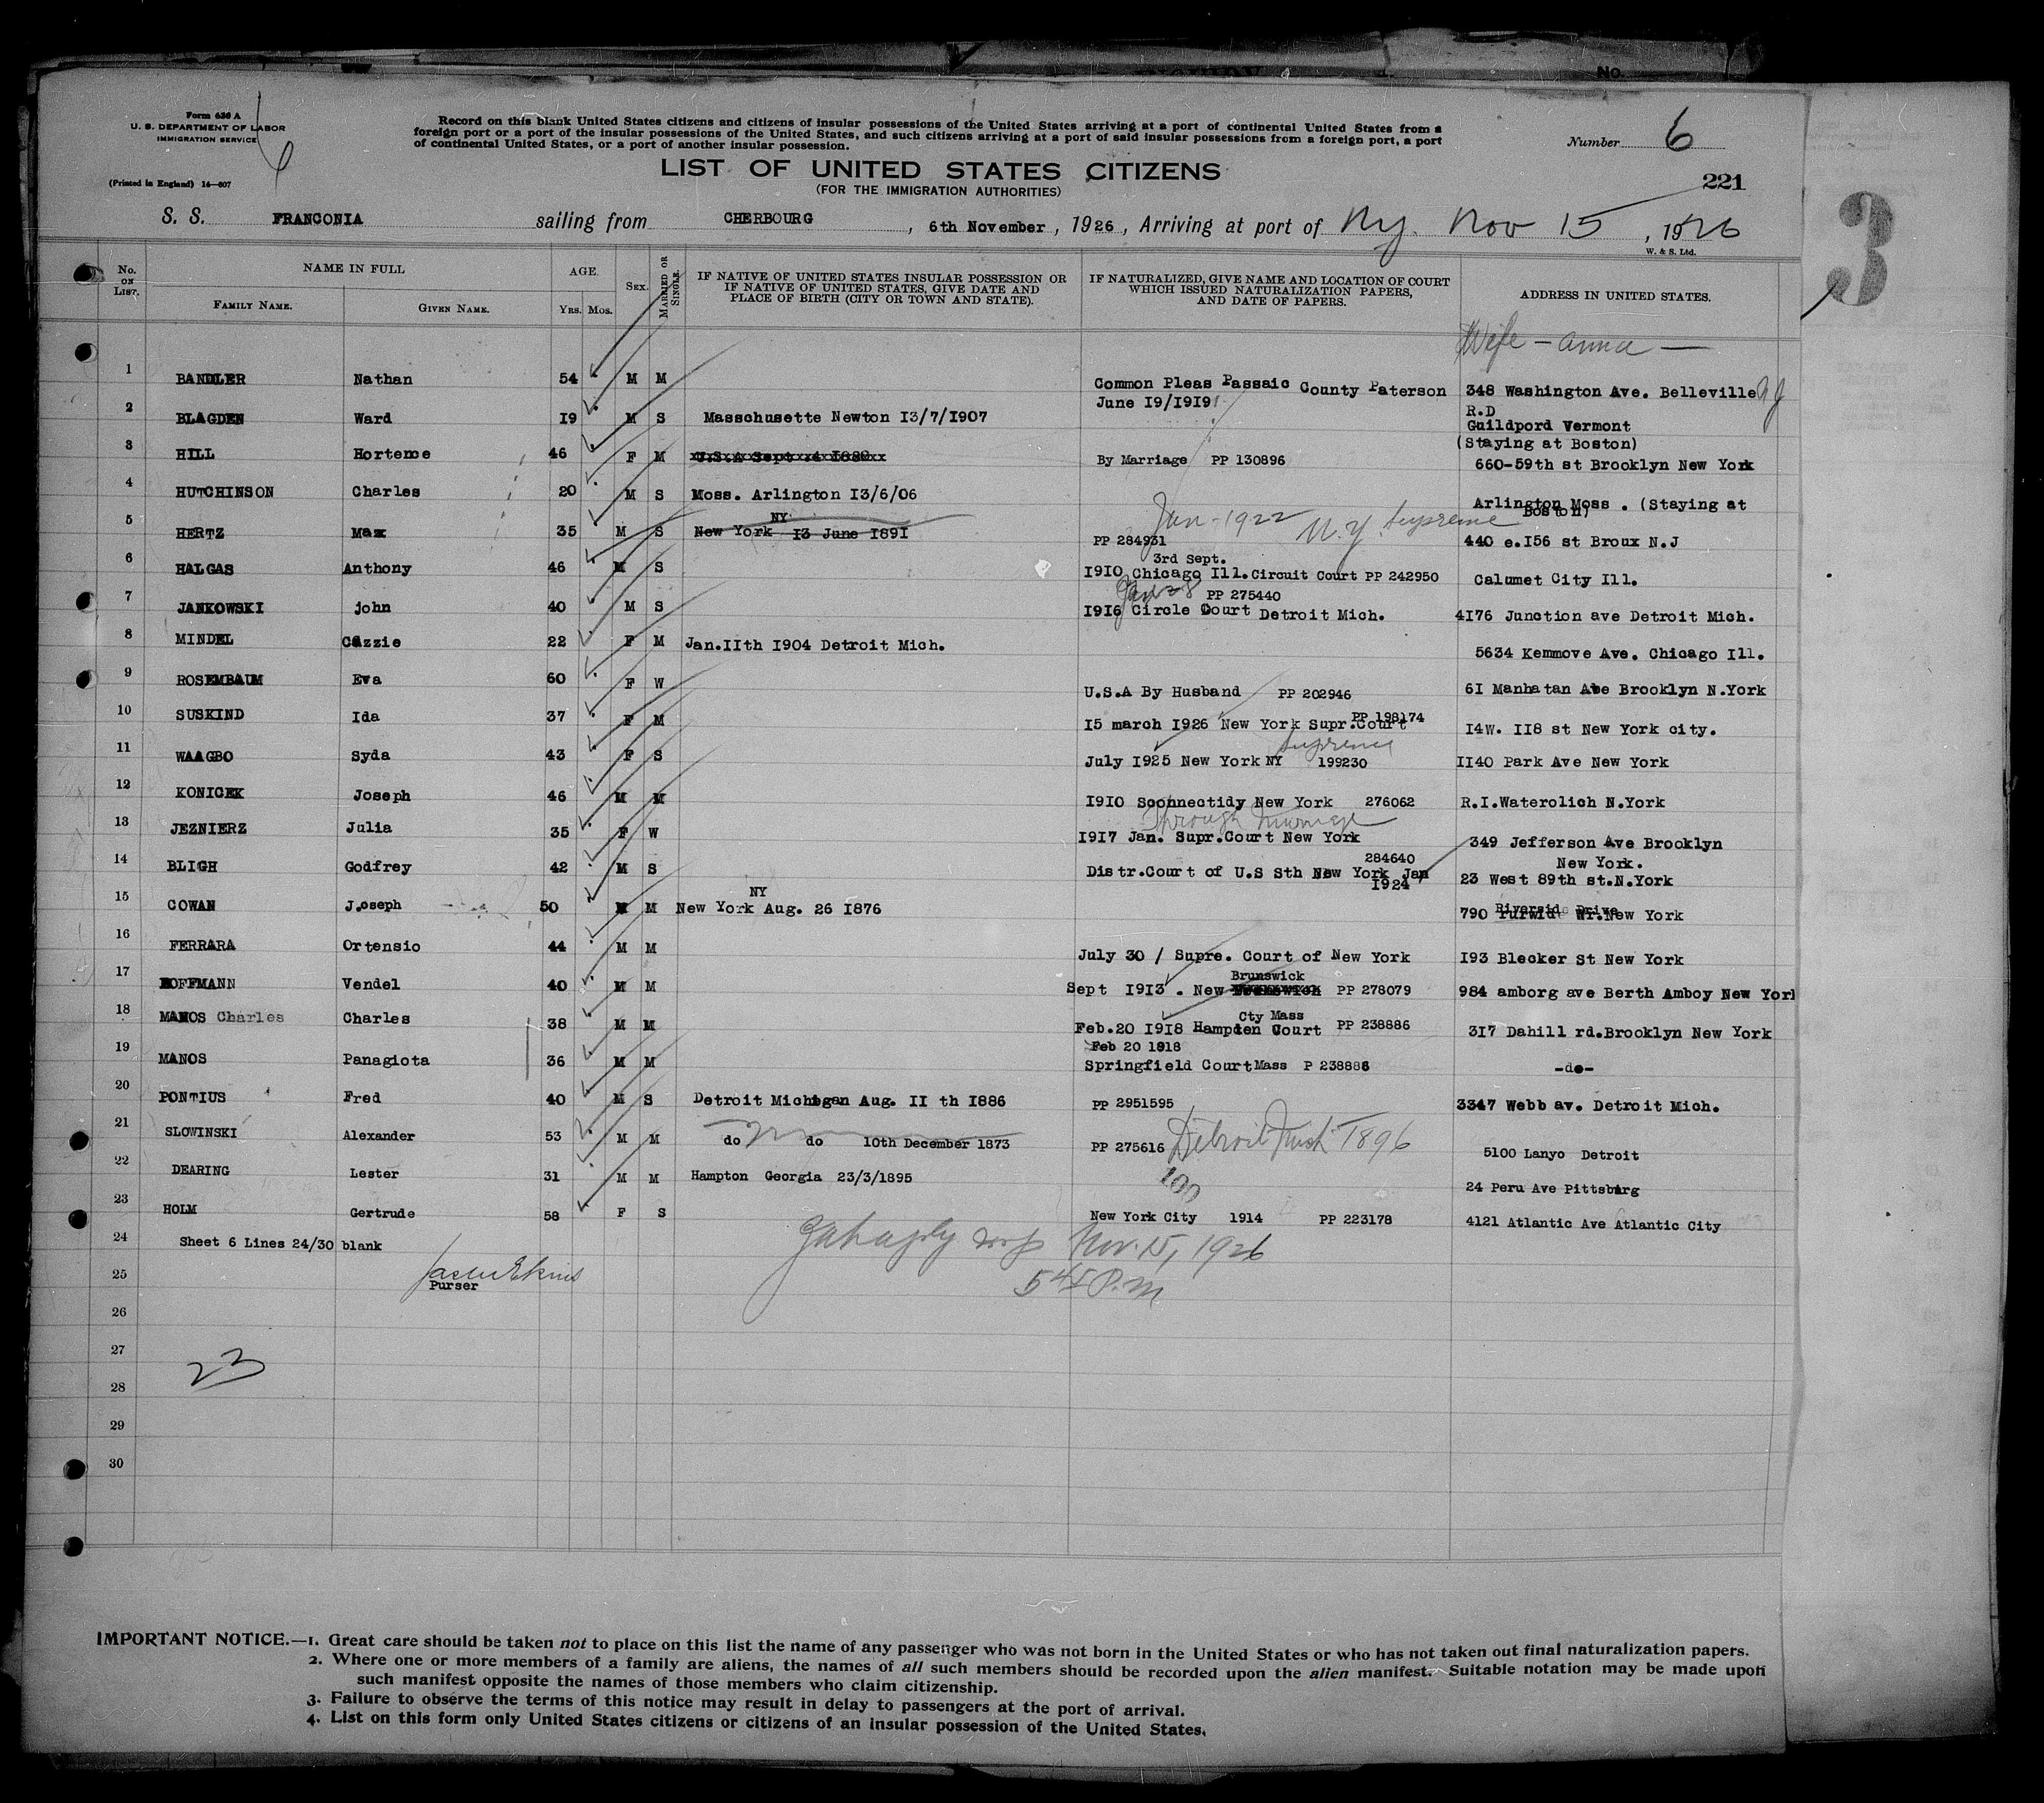 No.
Form 630 A
U. S. DEPARTMENT OF LABOR
IMMIGRATION SERVICE
(Printed in England) 14—607
Record on this blank United States citizens and citizens of insular possessions of the United States arriving at a port of continental United States from a
foreign port or a port of the insular possessions of the United States, and such citizens arriving at a port of said insular possessions from a foreign port, a port
of continental United States, or a port of another insular possession.
Number 6
LIST OF UNITED STATES CITIZENS
(FOR THE IMMIGRATION AUTHORITIES)
221
3
S. S. FRANCONIA sailing from CHERBOURG, 6th November, 1926, Arriving at port of Ny. Nov 15, 1926
W. & S. Ltd.
No. ON LIST. NAME IN FULL FAMILY NAME. GIVEN NAME. AGE. YRS. MOS. SEX. MARRIED OR SINGLE. IF NATIVE OF UNITED STATES INSULAR POSSESSION OR IF NATIVE OF UNITED STATES, GIVE DATE AND PLACE OF BIRTH (CITY OR TOWN AND STATE). IF NATURALIZED, GIVE NAME AND LOCATION OF COURT WHICH ISSUED NATURALIZATION PAPERS, AND DATE OF PAPERS. ADDRESS IN UNITED STATES.
Wife - Anna -
1 BANDLER Nathan 54 M M Common Pleas Passaic County Paterson 348 Washington Ave. Belleville NJ
June 19/1919
2 BLAGDEN Ward 19 M S Masschusette Newton 13/7/1907 R.D
Guildpord Vermont
(Staying at Boston)
3 HILL Hortence 46 F M U.S.A Sept 4 1880 By Marriage PP 130896 660-59th st Brooklyn New York
4 HUTCHINSON Charles 20 M S Moss. Arlington 13/6/06 Arlington Moss . (Staying at
Boston)
5 HERTZ Max 35 M S New York NY 13 June 1891 Jan-1922 N.Y. Supreme
PP 284931 440 e.156 st Broux N.J
3rd Sept.
6 HALGAS Anthony 46 M S 1910 Chicago Ill. Circuit Court PP 242950 Calumet City Ill.
PP 275440
7 JANKOWSKI john 40 M S 1916 Circle Court Detroit Mich. 4176 Junction ave Detroit Mich.
8 MINDEL Cazzie 22 F M Jan.11th 1904 Detroit Mich. 5634 Kemmove Ave. Chicago Ill.
9 ROSEMBAUM Eva 60 F W U.S.A By Husband PP 202946 61 Manhatan Ave Brooklyn N.York
10 SUSKIND Ida 37 F M 15 march 1926 New York Supr.Court PP 198174 14w. 118 st New York city.
Supreme
11 WAAGBO Syda 43 F S July 1925 New York NY 199230 1140 Park Ave New York
12 KONICEK Joseph 46 M M 1910 Sconnectidy New York 276062 R.I.Waterolich N.York
Through Marriage
13 JEZNIERZ Julia 35 F W 1917 Jan. Supr.Court New York 349 Jefferson Ave Brooklyn
New York.
284640
14 BLIGH Godfrey 42 M S Distr.Court of U.S Sth New York Jan 23 West 89th st.N.York
1924
NY
15 COWAN J.oseph 50 M M New York Aug. 26 1876 790 Riverside Drive New York
16 FERRARA Ortensio 44 M M July 30 / Supre. Court of New York 193 Blecker St New York
Brunswick
17 HOFFMANN Vendel 40 M M Sept 1913 . New PP 278079 984 amborg ave Berth Amboy New York
Cty Mass
18 MANOS Charles Charles 38 M M Feb.20 1918 Hampden Court PP 238886 317 Dahill rd.Brooklyn New York
Feb 20 1918
19 MANOS Panagiota 36 M M Springfield Court Mass P 238886 -do-
20 PONTIUS Fred 40 M S Detroit Michegan Aug. 11 th 1886 PP 2951595 3347 Webb av. Detroit Mich.
21 SLOWINSKI Alexander 53 M M do do 10th December 1873 PP 275616 Detroit Mich 1896 5100 Lanyo Detroit
22 DEARING Lester 31 M M Hampton Georgia 23/3/1895 100 24 Peru Ave Pittsburg
23 HOLM Gertrude 58 F S New York City 1914 PP 223178 4121 Atlantic Ave Atlantic City
24 Sheet 6 Lines 24/30 blank
Nov. 15, 1926
25 Purser
5 45 P.M
26
27
23
28
29
30
IMPORTANT NOTICE.—1. Great care should be taken not to place on this list the name of any passenger who was not born in the United States or who has not taken out final naturalization papers.
2. Where one or more members of a family are aliens, the names of all such members should be recorded upon the alien manifest. Suitable notation may be made upon
such manifest opposite the names of those members who claim citizenship.
3. Failure to observe the terms of this notice may result in delay to passengers at the port of arrival.
4. List on this form only United States citizens or citizens of an insular possession of the United States.